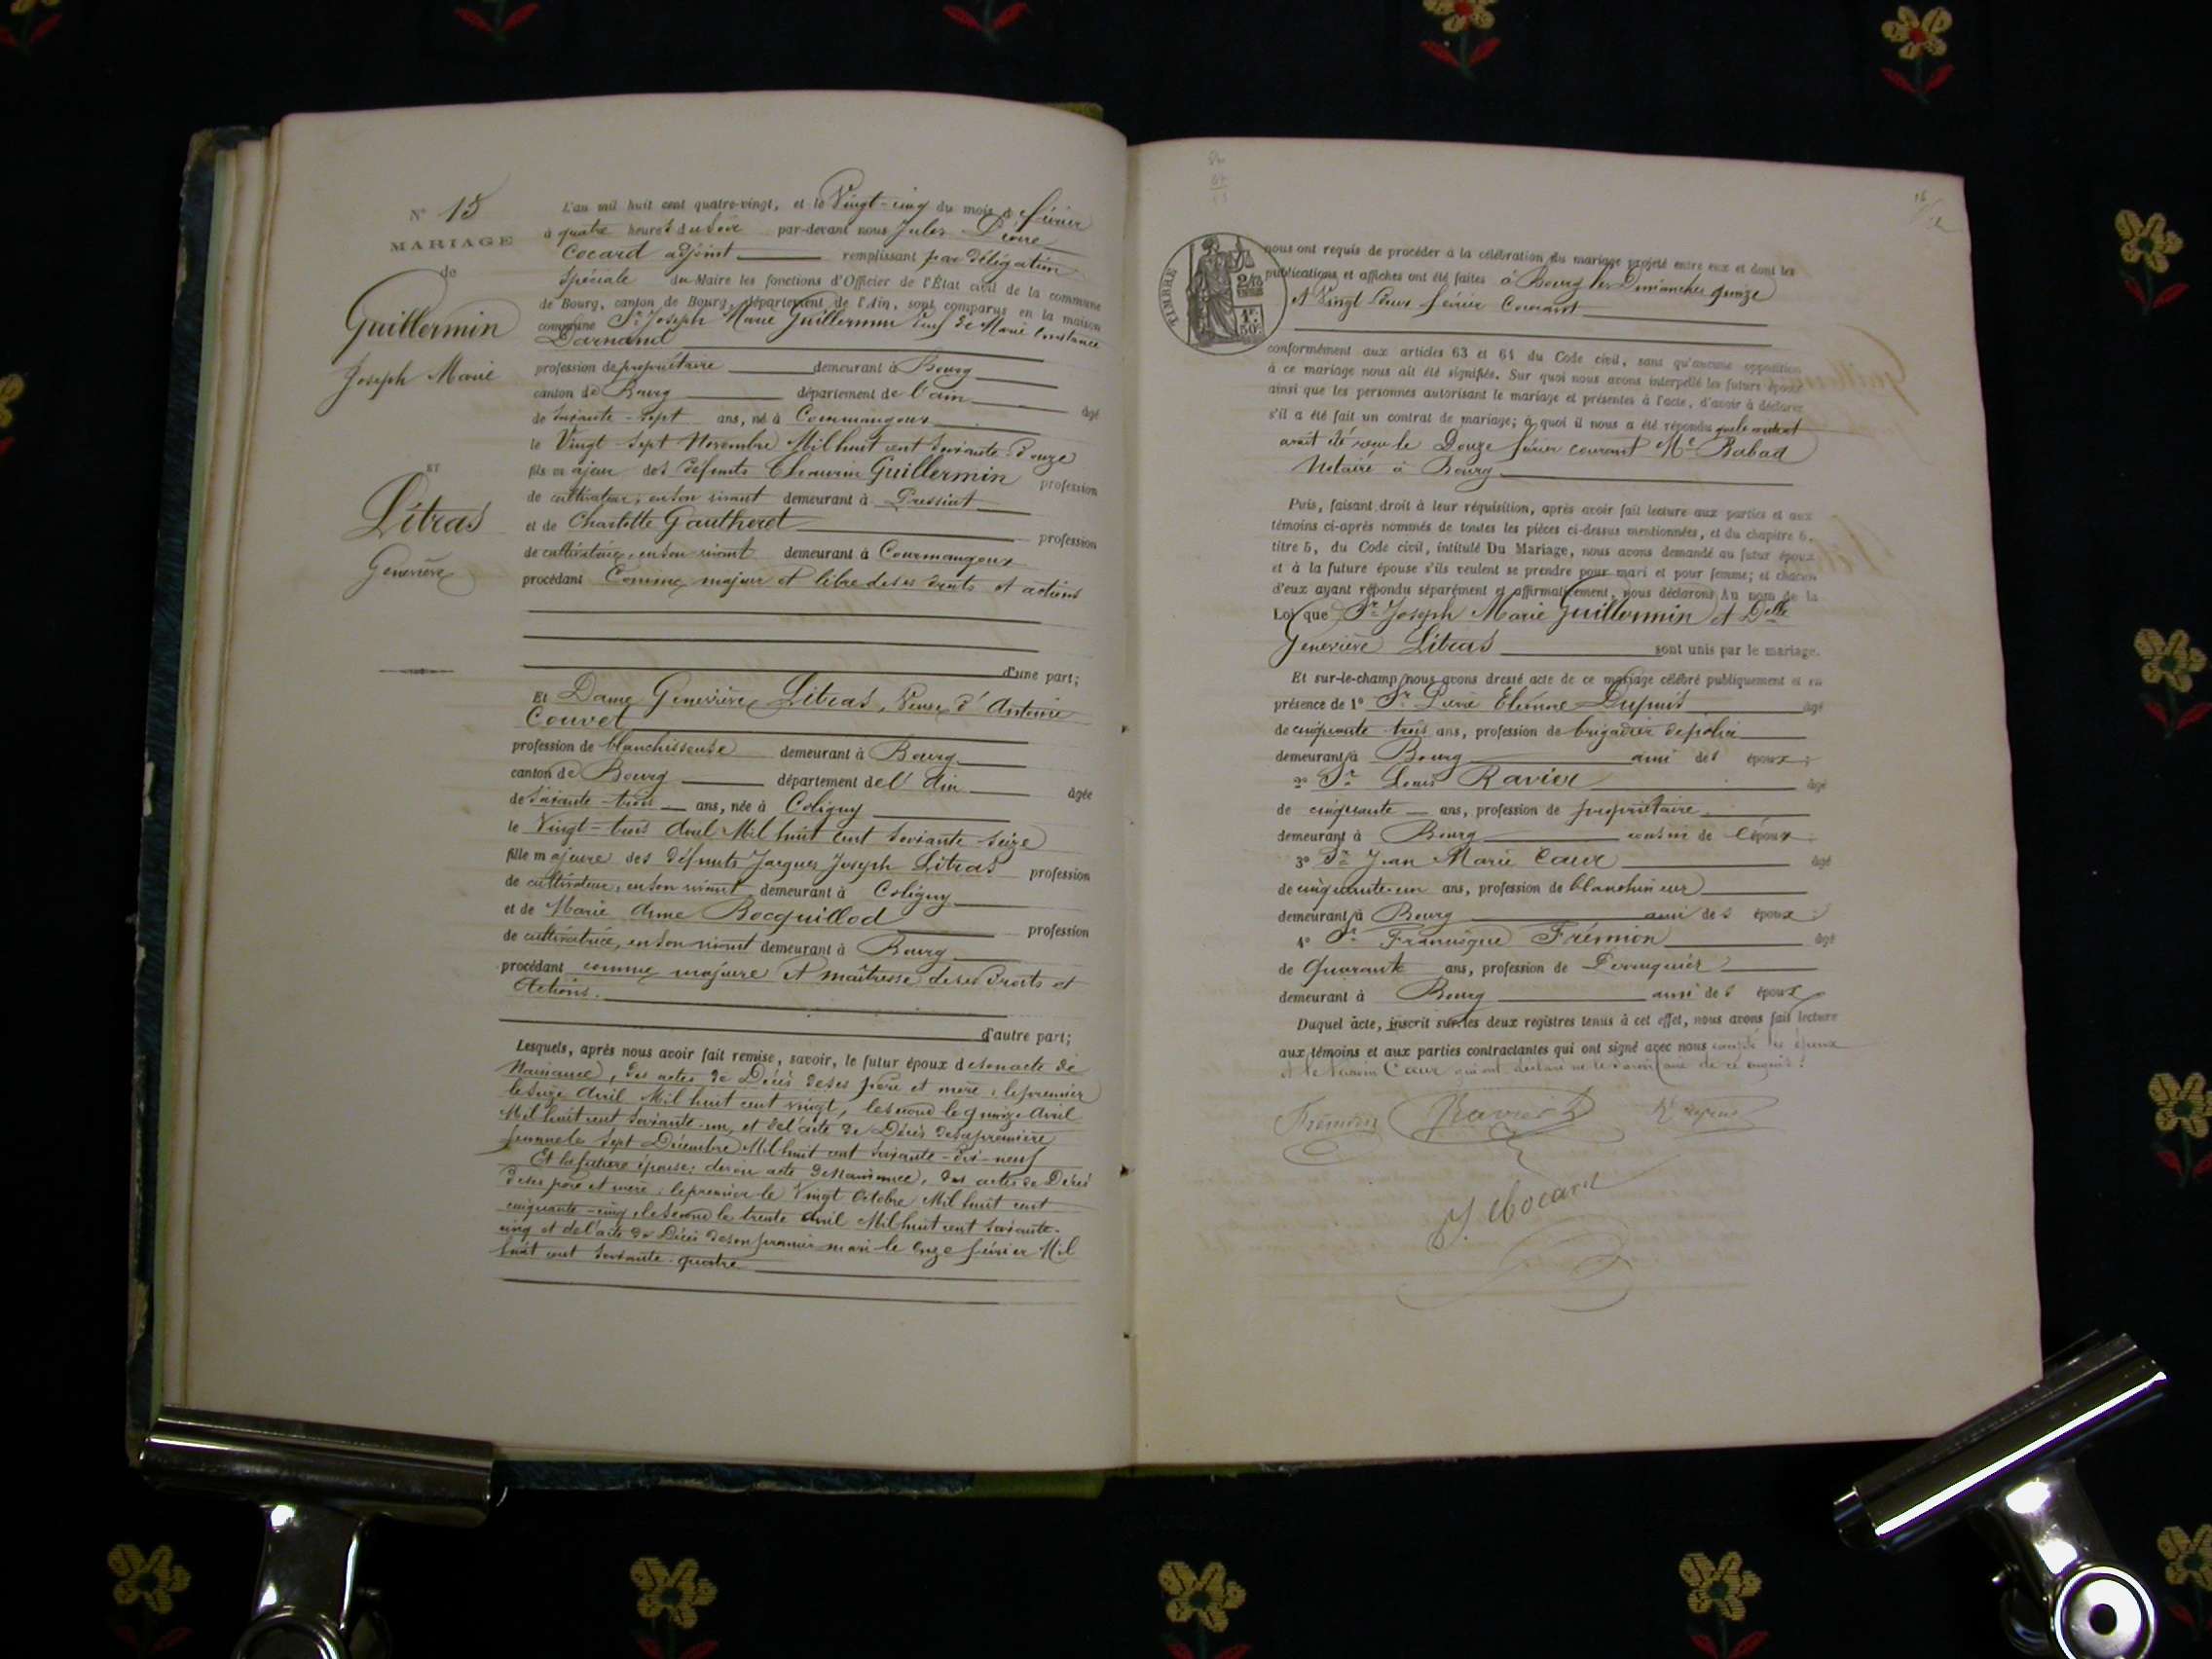 N° 15
MARIAGE
de
Guillermin
Joseph Marie
ET
Litras
Geneviève
L'an mil huit cent quatre-vingt, et le Vingt-cinq du mois de février
à quatre heures du Soir par-devant nous Jules Pierre
Cocard adjoint remplissant par délégation
Spéciale du Maire les fonctions d'Officier de l'État civil de la commune
de Bourg, canton de Bourg, département de l'Ain, sont comparus en la maison
commune Sr Joseph Marie Guillermin veuf de Marie Constance
Darnand
profession de propriétaire demeurant à Bourg
canton de Bourg département de l'ain âgé
de soixante-sept ans, né à Courmangoux
le Vingt-sept Novembre Mil huit cent soixante-douze
fils majeur des défunts Guillermin profession
de cultivateur, en son vivant demeurant à Pressiat
et de Charlotte Gautheret profession
de cultivatrice, en son vivant demeurant à Courmangoux
procédant Comme majeur et libre de ses droits et actions
d'une part;
Et Dame Geneviève Litras, Veuve d'Antoine
Couvet
profession de blanchisseuse demeurant à Bourg
canton de Bourg département de l'Ain âgée
de soixante-trois ans, née à Coligny
le Vingt-trois Avril Mil huit cent soixante-seize
fille majeure des défunts Jacques Joseph Litras profession
de cultivateur, en son vivant demeurant à Coligny
et de Marie Anne Bocquillod profession
de cultivatrice, en son vivant demeurant à Bourg
procédant comme majeure et maîtresse de ses droits et
Actions.
d'autre part;
Lesquels, après nous avoir fait remise, savoir, le futur époux de son acte de
Naissance, des actes de Décès de ses père et mère, le premier
le seize Avril Mil huit cent vingt, le second le quinze Avril
Mil huit cent soixante-un, et de l'acte de Décès de sa première
femme le sept Décembre Mil huit cent soixante-dix-neuf
Et la future épouse: de son acte de Naissance, des actes de Décès
de ses père et mère, le premier le Vingt Octobre Mil huit cent
cinquante-cinq, le second le trente Avril Mil huit cent soixante-
cinq et de l'acte de Décès de son premier mari le Onze février Mil
huit cent soixante-quatre
TIMBRE
nous ont requis de procéder à la célébration du mariage projeté entre eux et dont les
publications et affiches ont été faites à Bourg les Dimanches quinze
et Vingt Deux février Courant
conformément aux articles 63 et 64 du Code civil, sans qu'aucune opposition
à ce mariage nous ait été signifiée. Sur quoi nous avons interpellé les futurs époux
ainsi que les personnes autorisant le mariage et présentes à l'acte, d'avoir à déclarer
s'il a été fait un contrat de mariage; à quoi il nous a été répondu que le contrat
avait été reçu le Douze février courant Me Rabad
Notaire à Bourg
Puis, faisant droit à leur réquisition, après avoir fait lecture aux parties et aux
témoins ci-après nommés de toutes les pièces ci-dessus mentionnées, et du chapitre 6,
titre 5, du Code civil, intitulé Du Mariage, nous avons demandé au futur époux
et à la future épouse s'ils veulent se prendre pour mari et pour femme; et chacun
d'eux ayant répondu séparément et affirmativement, nous déclarons Au nom de la
Loi que Sr Joseph Marie Guillermin et Delle
Geneviève Litras sont unis par le mariage.
Et sur-le-champ nous avons dressé acte de ce mariage célébré publiquement et en
présence de 1° Sr Pierre Etienne Dupuis âgé
de cinquante-trois ans, profession de brigadier de police
demeurant à Bourg ami des époux;
2° Sr Louis Ravier âgé
de cinquante ans, profession de propriétaire
demeurant à Bourg cousin de l'époux
3° Sr Jean Marie Cœur âgé
de cinquante-un ans, profession de blanchisseur
demeurant à Bourg ami des époux;
4° Sr Francisque Frémion âgé
de Quarante ans, profession de Perruquier
demeurant à Bourg ami des époux
Duquel acte, inscrit sur les deux registres tenus à cet effet, nous avons fait lecture
aux témoins et aux parties contractantes qui ont signé avec nous excepté les époux
et le témoin Cœur qui ont déclaré ne le savoir faire de ce enquis.
Frémion Ravier Dupuis
J. Cocard